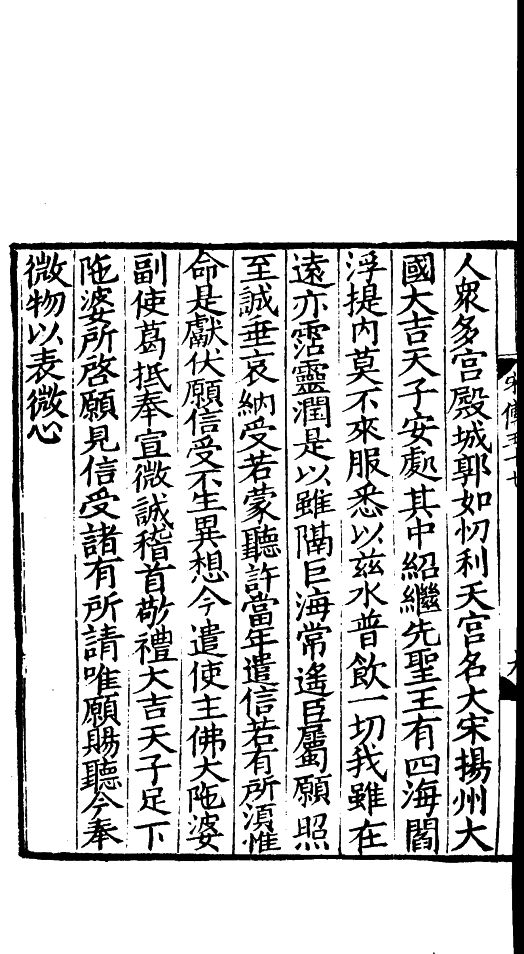 人衆多宫殿城郭如忉利天宫名大宋揚州大
國大吉天子安處其中紹繼先聖王有四海閻
浮提内莫不來服悉以兹水普飲一切我雖在
遠亦霑靈潤是以雖隔巨海常遙臣屬願照
至誠垂哀納受若蒙聽許當年遣信若有所湏惟
命是獻伏願信受不生異想今遣使主佛大陁婆
副使葛抵奉宣微誠稽首敬禮大吉天子足下
陁婆所啓願見信受諸有所請唯願賜聽今奉
微物以表微心